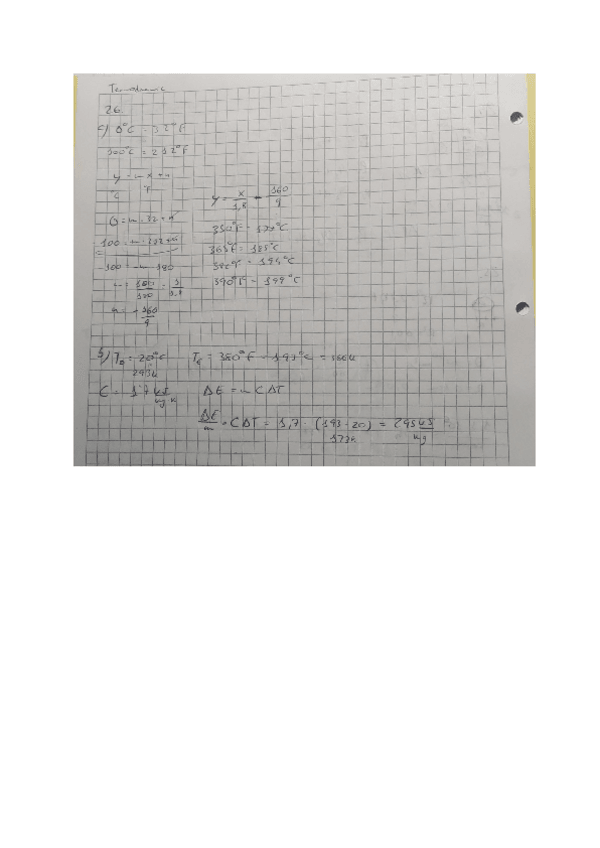 26.
c) 0°C = 32°F
100°C = 212°F
y = mx + n
°F
°C
0 = m·32 + n
100 = m·212 + n
-100 = -m 180
m = 100/180 = 1/1,8
n = -160/9
y = x/1,8 - 160/9
350°F = 177°C
365°F = 185°C
380°F = 193°C
390°F = 199°C
b) T₀ = 20°C
293K
= 380°F = 193°C =
C = 1,7 kJ/kg·K
ΔE = m C ΔT
ΔE/m = C ΔT = 1,7 · (193 - 20) = 295 kJ/kg
173K